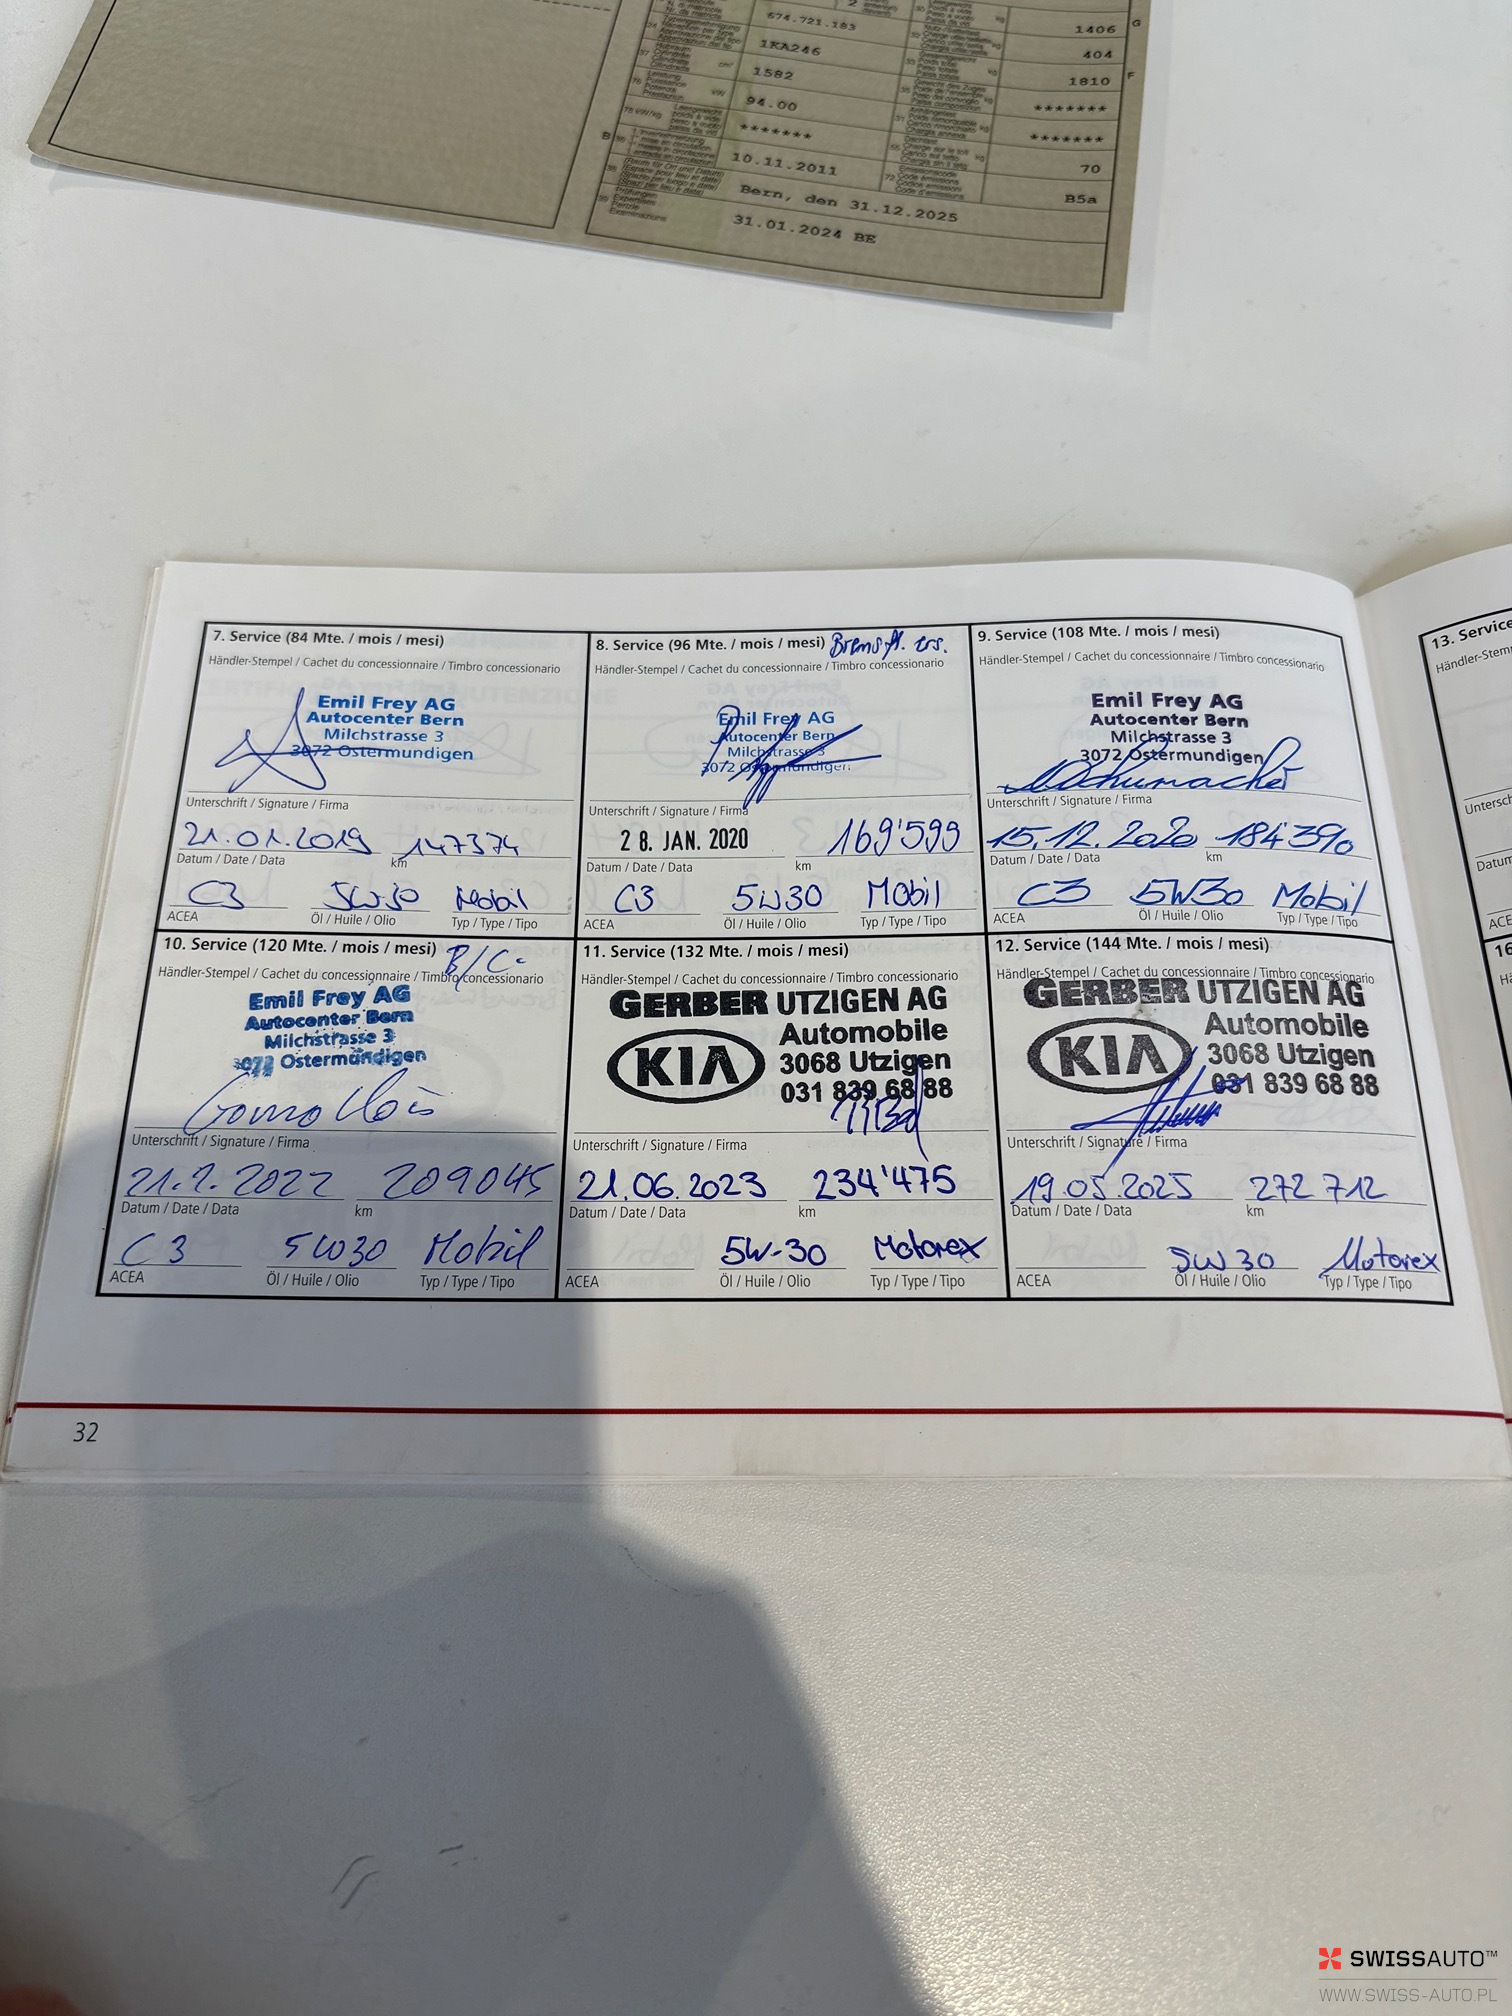 674.721.183
1406
G
1KA246
404
cm³
1582
1810
F
kW
94.00
*******
*******
*******
B
10.11.2011
70
Bern, den 31.12.2025
B5a
31.01.2024 BE
7. Service (84 Mte. / mois / mesi)
Händler-Stempel / Cachet du concessionnaire / Timbro concessionario
Emil Frey AG
Autocenter Bern
Milchstrasse 3
3072 Ostermundigen
Unterschrift / Signature / Firma
21.01.2019 147374
Datum / Date / Data km
C3 5W30 Mobil
ACEA Öl / Huile / Olio Typ / Type / Tipo
8. Service (96 Mte. / mois / mesi) Bremsfl. ers.
Händler-Stempel / Cachet du concessionnaire / Timbro concessionario
Emil Frey AG
Autocenter Bern
Milchstrasse 3
3072 Ostermundigen
Unterschrift / Signature / Firma
28. JAN. 2020 169'599
Datum / Date / Data km
C3 5W30 Mobil
ACEA Öl / Huile / Olio Typ / Type / Tipo
9. Service (108 Mte. / mois / mesi)
Händler-Stempel / Cachet du concessionnaire / Timbro concessionario
Emil Frey AG
Autocenter Bern
Milchstrasse 3
3072 Ostermundigen
Unterschrift / Signature / Firma
15.12.2020 184'390
Datum / Date / Data km
C3 5W30 Mobil
ACEA Öl / Huile / Olio Typ / Type / Tipo
10. Service (120 Mte. / mois / mesi) B/C.
Händler-Stempel / Cachet du concessionnaire / Timbro concessionario
Emil Frey AG
Autocenter Bern
Milchstrasse 3
3072 Ostermundigen
Unterschrift / Signature / Firma
21.2.2022 209045
Datum / Date / Data km
C3 5W30 Mobil
ACEA Öl / Huile / Olio Typ / Type / Tipo
11. Service (132 Mte. / mois / mesi)
Händler-Stempel / Cachet du concessionnaire / Timbro concessionario
GERBER UTZIGEN AG
KIA Automobile
3068 Utzigen
031 839 68 88
Unterschrift / Signature / Firma
21.06.2023 234'475
Datum / Date / Data km
5W-30 Motorex
ACEA Öl / Huile / Olio Typ / Type / Tipo
12. Service (144 Mte. / mois / mesi)
Händler-Stempel / Cachet du concessionnaire / Timbro concessionario
GERBER UTZIGEN AG
KIA Automobile
3068 Utzigen
031 839 68 88
Unterschrift / Signature / Firma
19.05.2025 272 712
Datum / Date / Data km
5W30 Motorex
ACEA Öl / Huile / Olio Typ / Type / Tipo
13. Service
32
SWISSAUTO™
WWW.SWISS-AUTO.PL